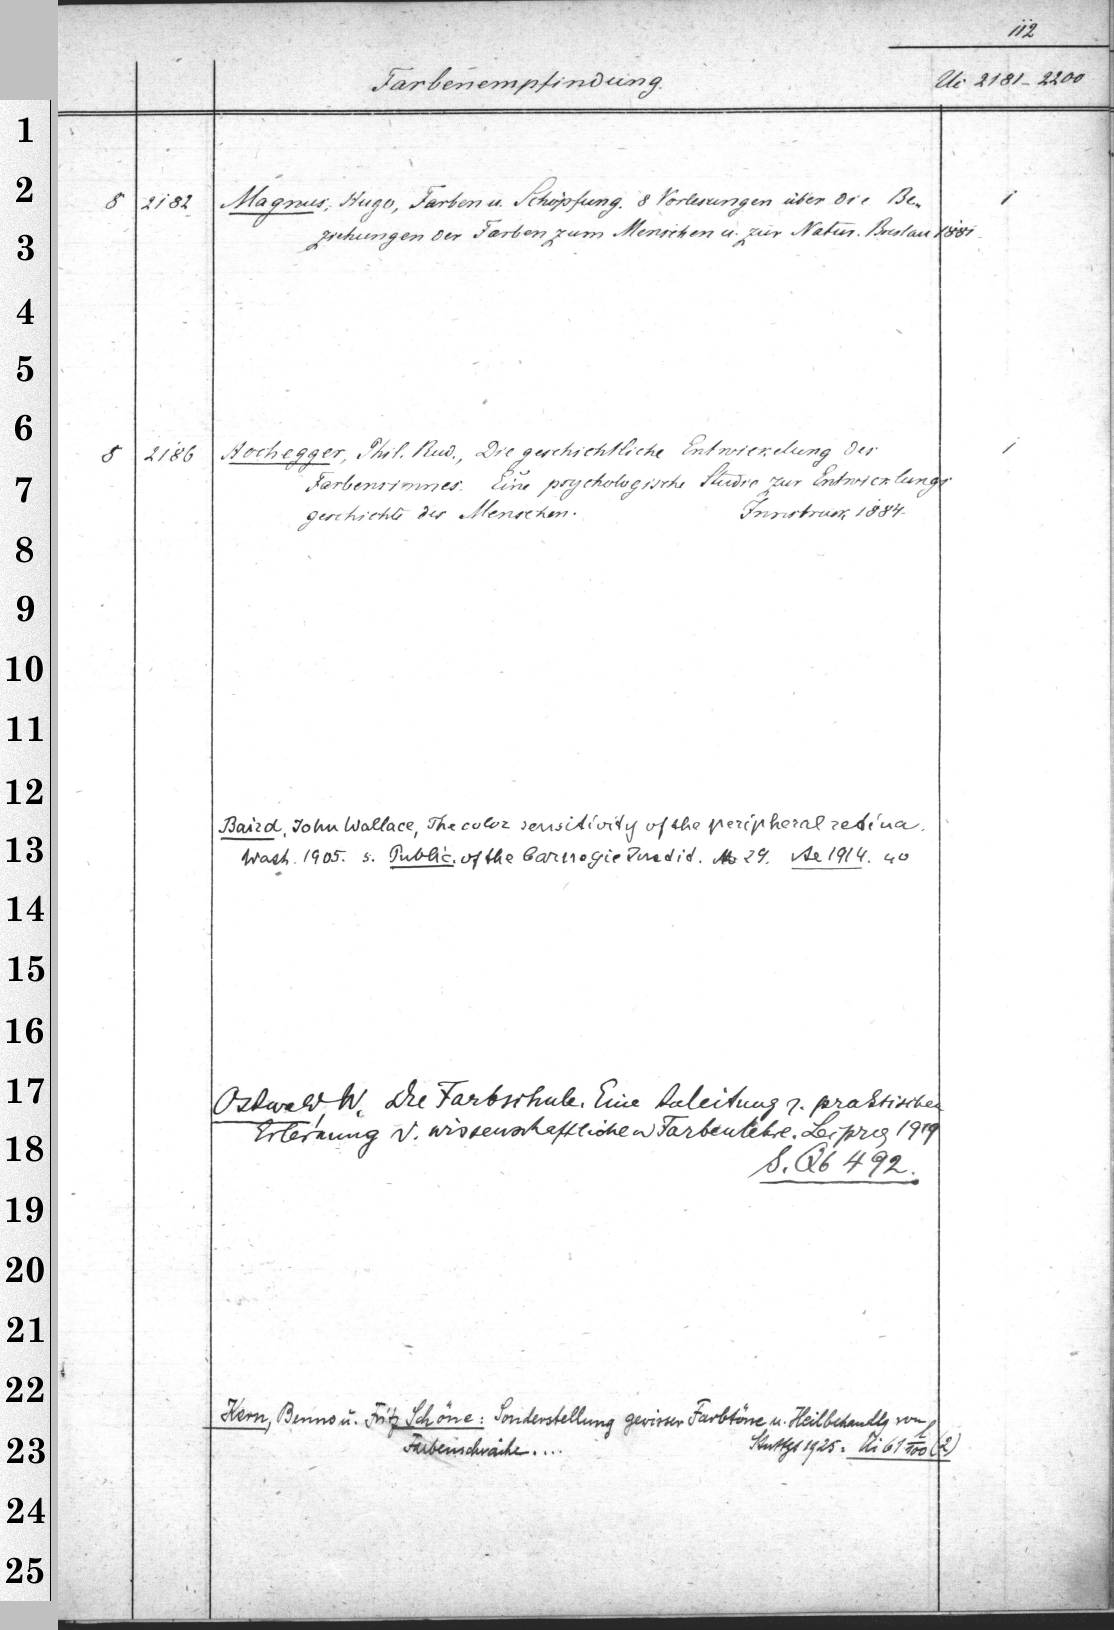 112
Farbenempfindung.
Ui 2181-2200
1
2
8 2182 Magnus, Hugo, Farben u. Schöpfung. 8 Vorlesungen über die Be- 1
3
ziehungen der Farben zum Menschen u. zur Natur. Breslau 1881.
4
5
6
8 2186 Hochegger, Phil. Rud., Die geschichtliche Entwickelung des 1
7
Farbensinnes. Eine psychologische Studie zur Entwicklungs
geschichte des Menschen. Innsbruck 1884.
8
9
10
11
12
Baird, John Wallace, The color sensitivity of the peripheral retina.
13
Wash. 1905. s. Public. of the Carnegie Instit. No 29. Ae 1914. 40
14
15
16
17
Ostwald, W. Die Farbschule. Eine Anleitung z. praktischen
Erlernung d. wissenschaftlichen Farbenlehre. Leipzig 1919
18
S. Qb 492.
19
20
21
22
Kern, Benno u. Fritz Schöne: Sonderstellung gewisser Farbtöne u. Heilbehandlg von
23
Farbenschwäche.... Stuttgt 1925. Ui 61 l/100 (2)
24
25